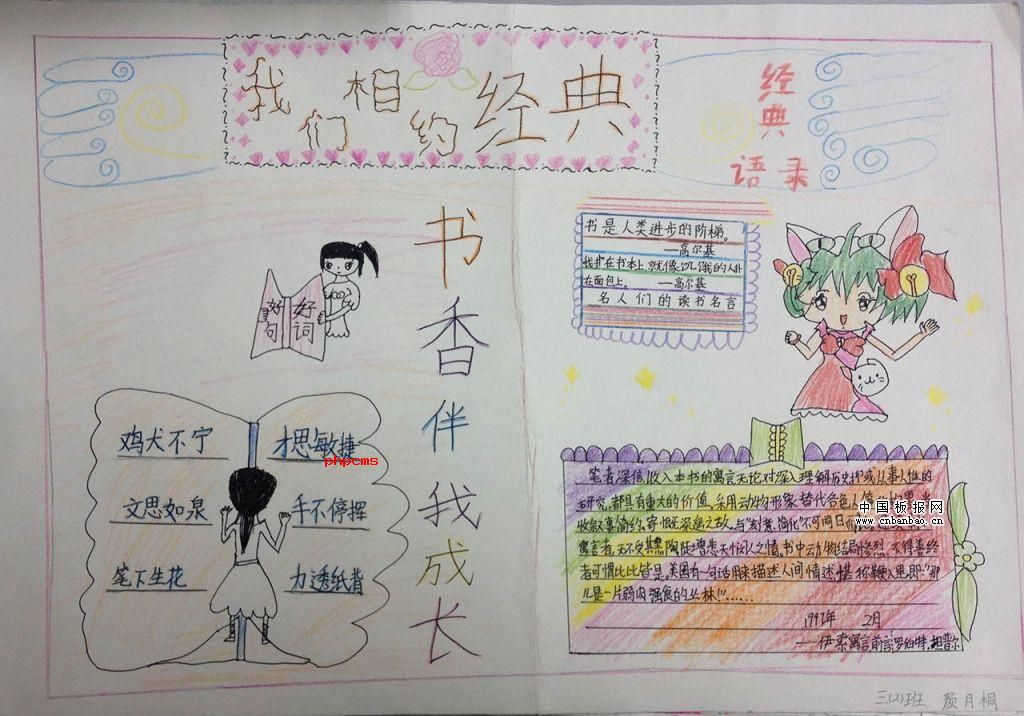 我们相约经典
经典
语录
书是人类进步的阶梯。
—高尔基
我扑在书本上,就像饥饿的人扑
在面包上。 —高尔基
名人们的读书名言
好句
好词
书香伴我成长
鸡犬不宁
才思敏捷
phpcms
文思如泉
手不停挥
笔下生花
力透纸背
笔者深信,收入本书的寓言无论对深入理解历史抑或从事人性的
研究,都具有重大的价值,采用动物形象替代各色人
收叙事简约,寄慨深
寓言者,无不
书中动物结局惨烈,不得善终
者可惜比比皆是,美国有一句话用来描述人间情述,堪称鞭入里,即:"那
儿是一片弱肉强食的丛林!"……
1997年 2月
——伊索寓言前言罗伯特.坦普尔
中国板报网
www.cnbanbao.cn
三(2)班 颜月桐